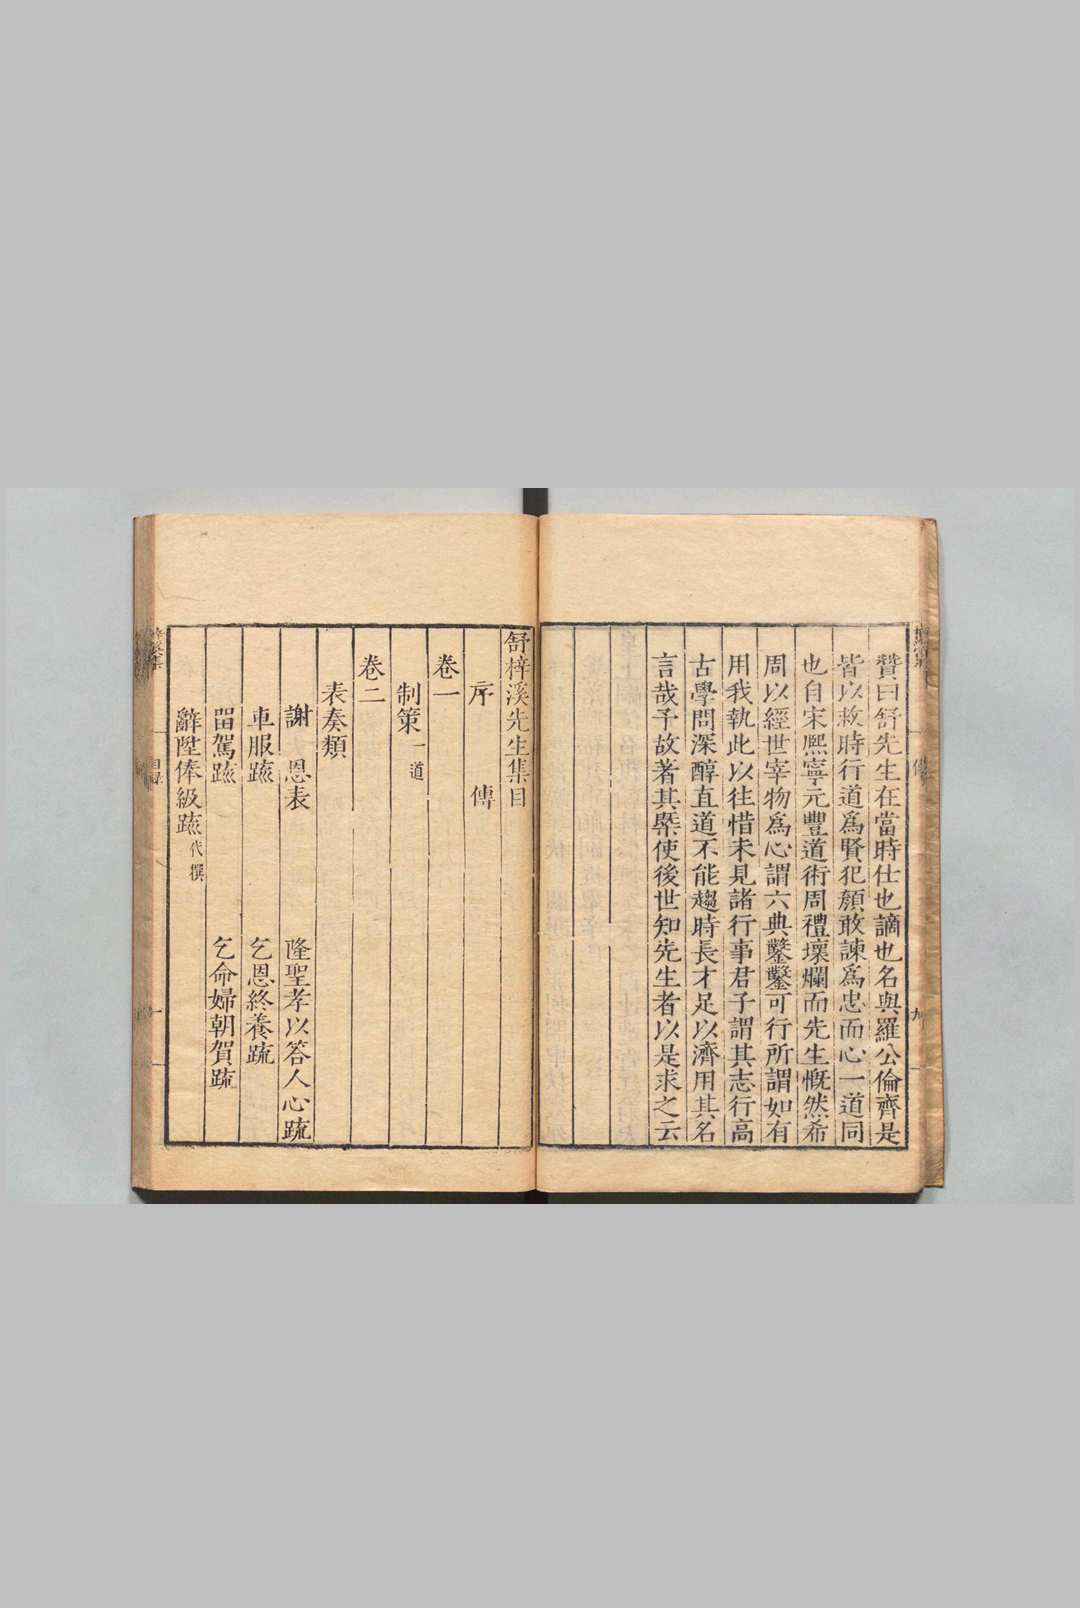 贊曰舒先生在當時仕也謫也名與羅公倫齊是
皆以救時行道爲賢犯顏敢諫爲忠而心一道同
也自宋熈寧元豐道術周禮壞爛而先生慨然希
周以經世宰物爲心謂六典鑿鑿可行所謂如有
用我執此以往惜未見諸行事君子謂其志行高
古學問深醇直道不能趨時長才足以濟用其名
言哉予故著其槩使後世知先生者以是求之云
舒梓溪先生集目
序 傳
卷一
制策一道
卷二
表奏類
謝恩表 隆聖孝以答人心疏
車服䟽 乞恩終養疏
留駕䟽 乞命婦朝賀疏
辭陞俸級䟽代撰